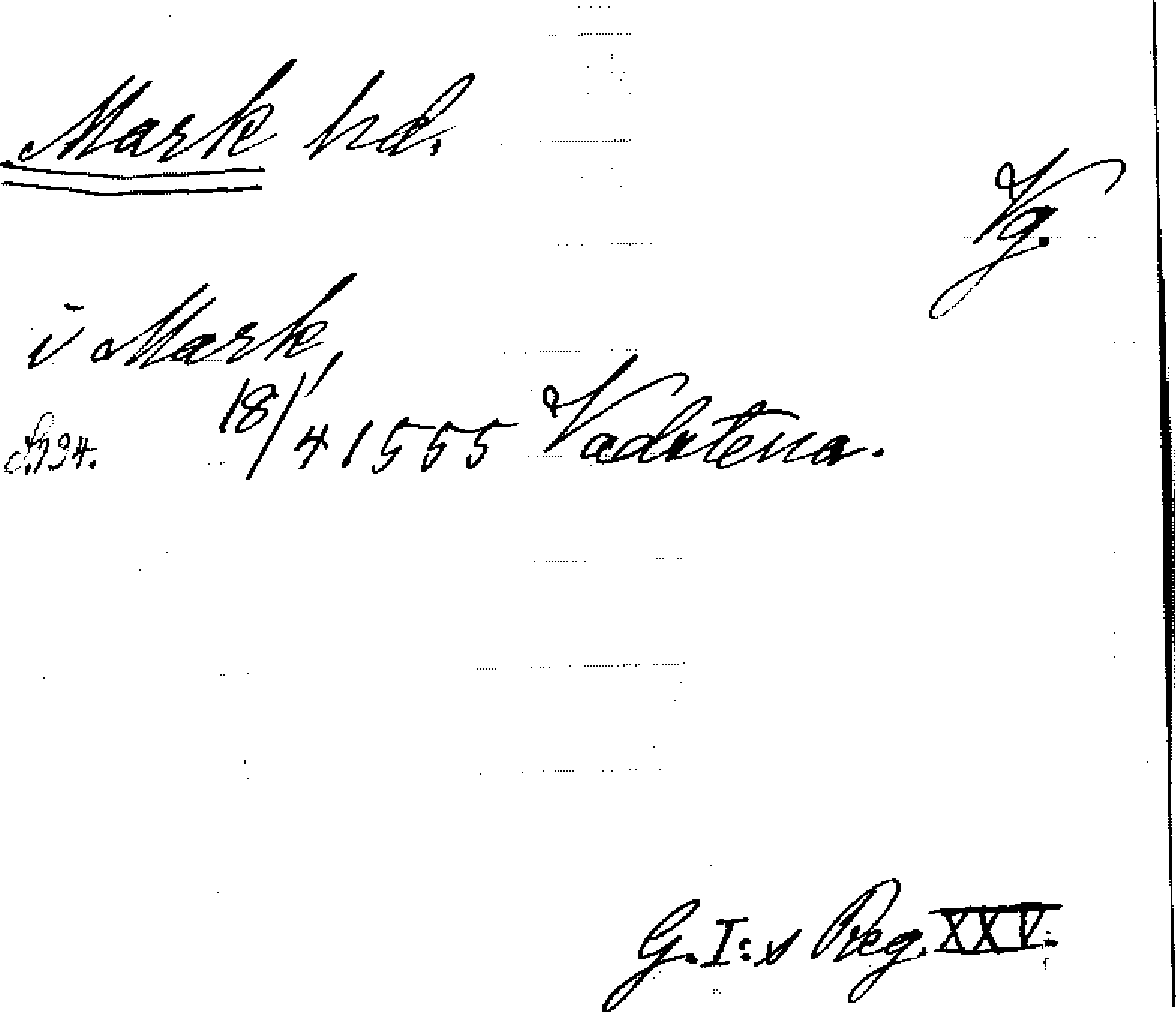 Mark hd.
Vg.
i Mark,
18/4 1555 Vadstena.
S. 194.
G. I:s Reg. XXV.